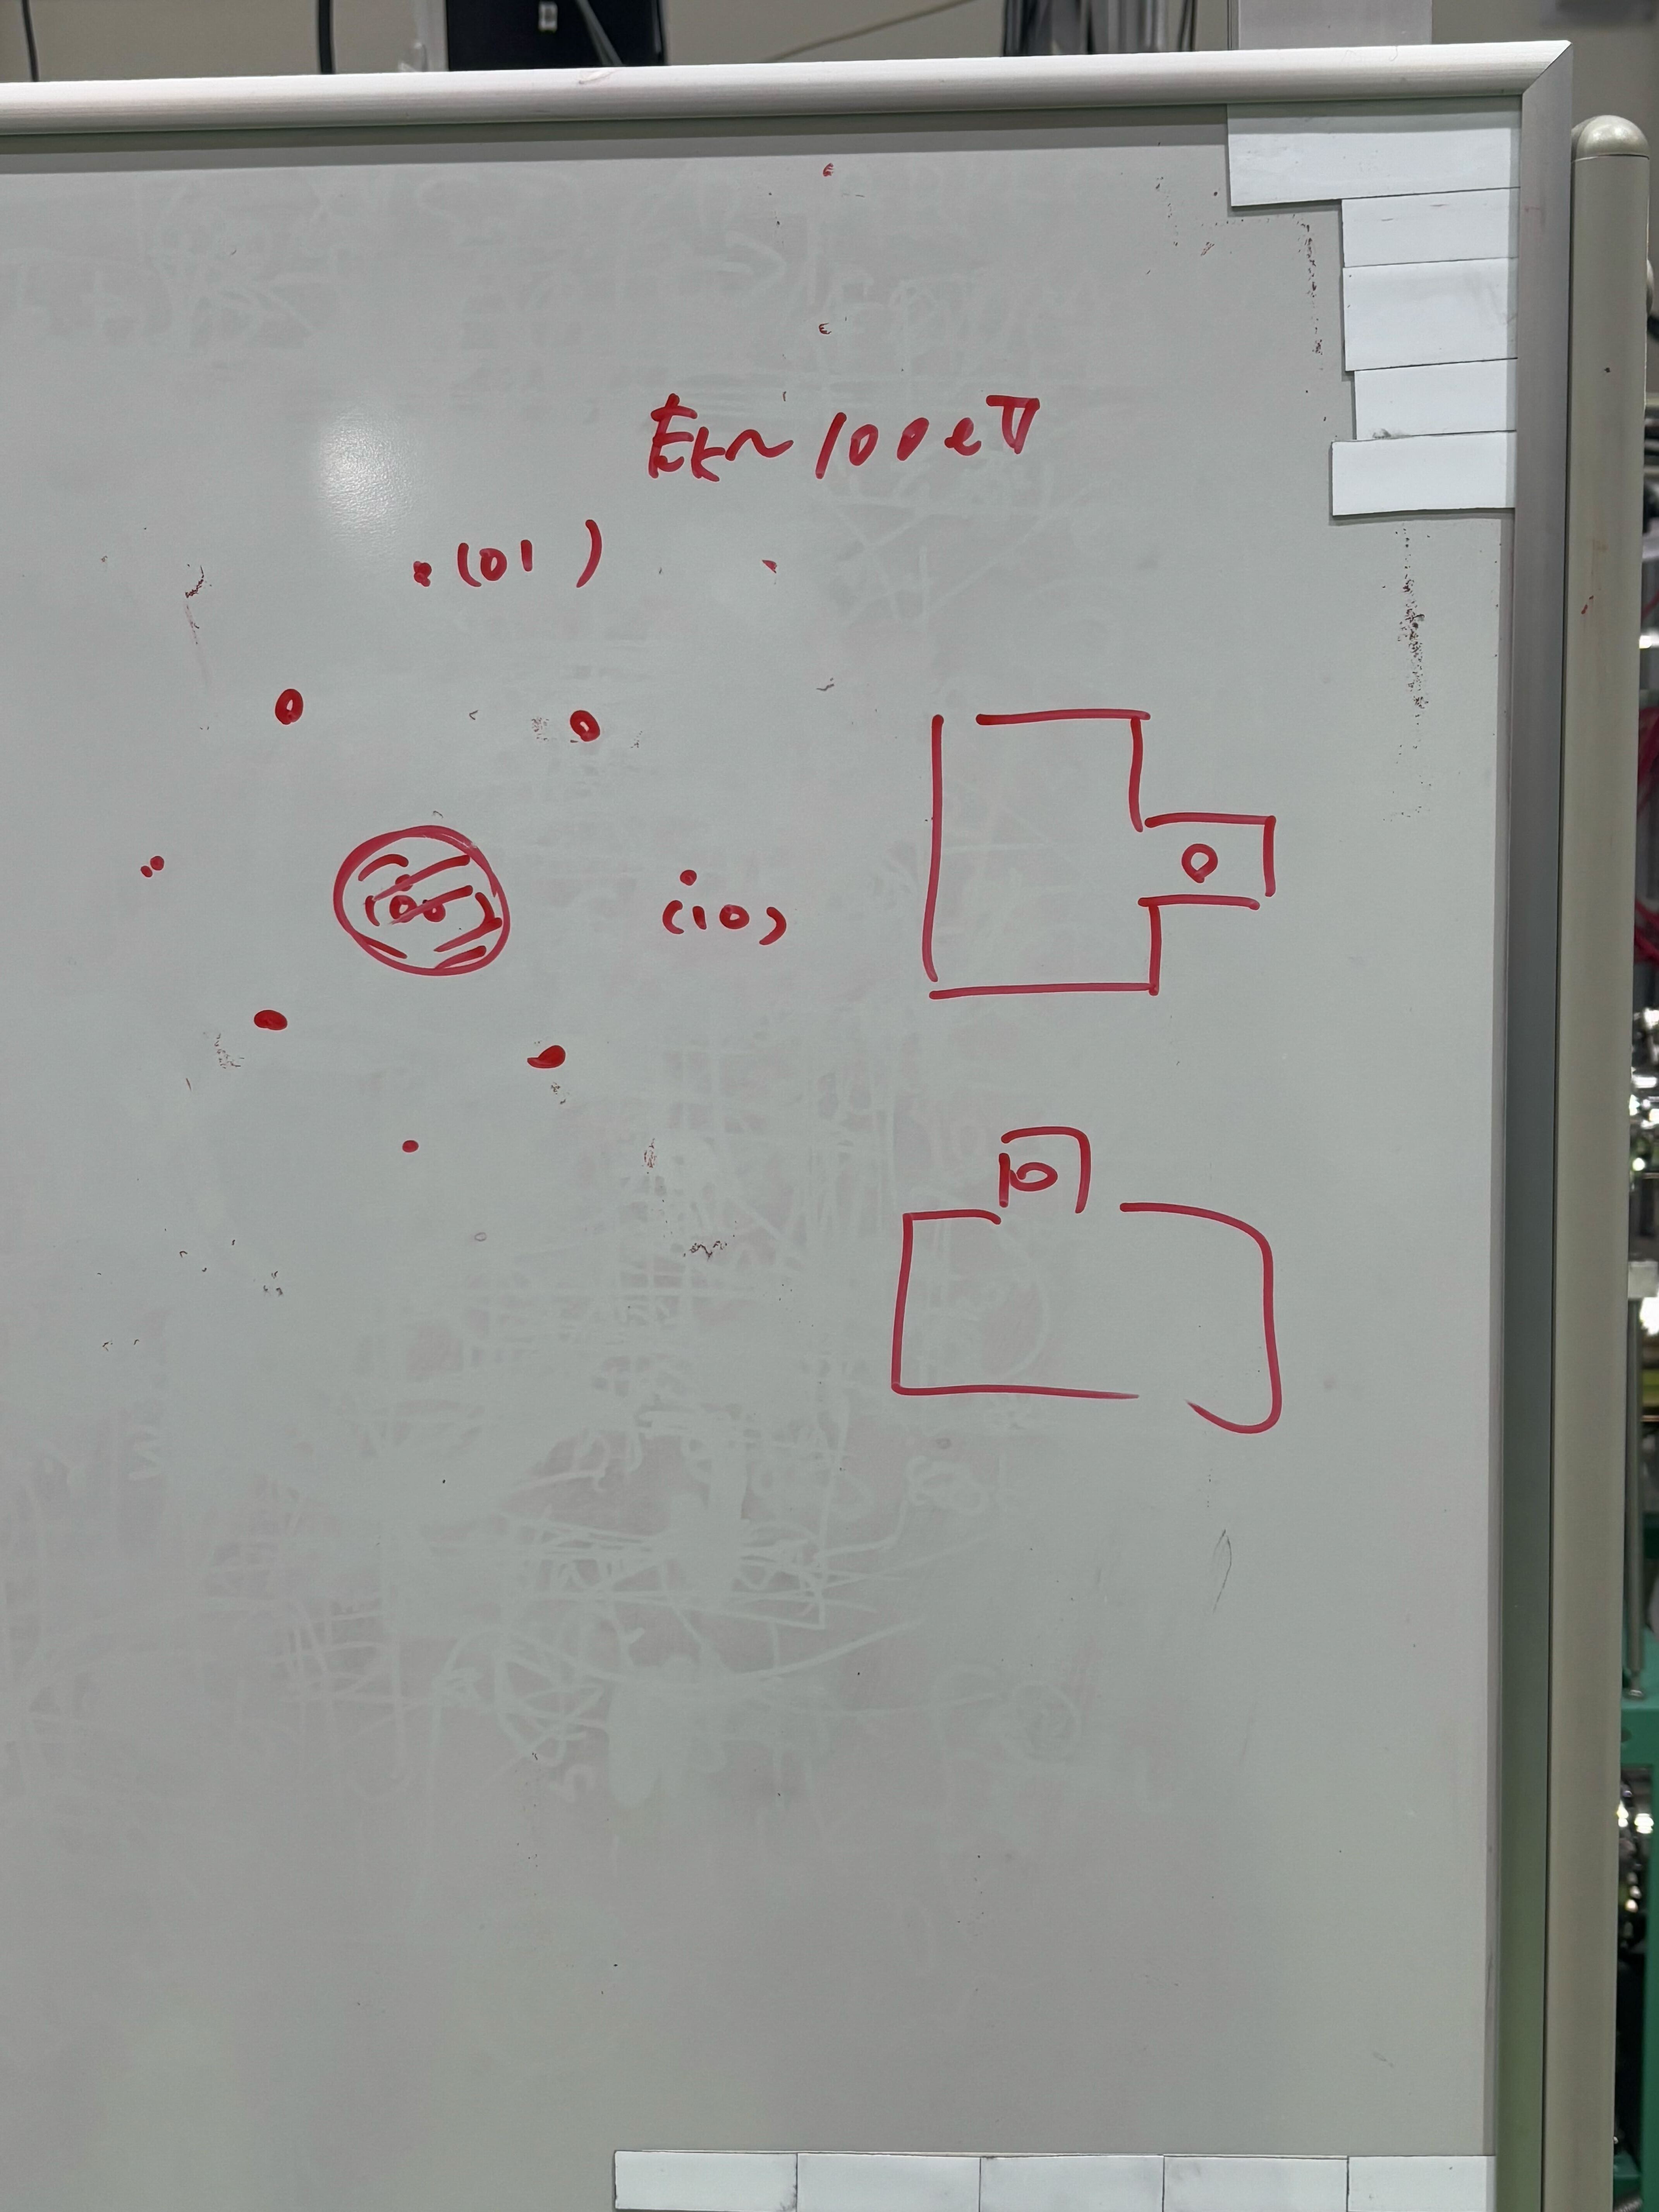 Ek~100eV
(01 )
(00)
(10)